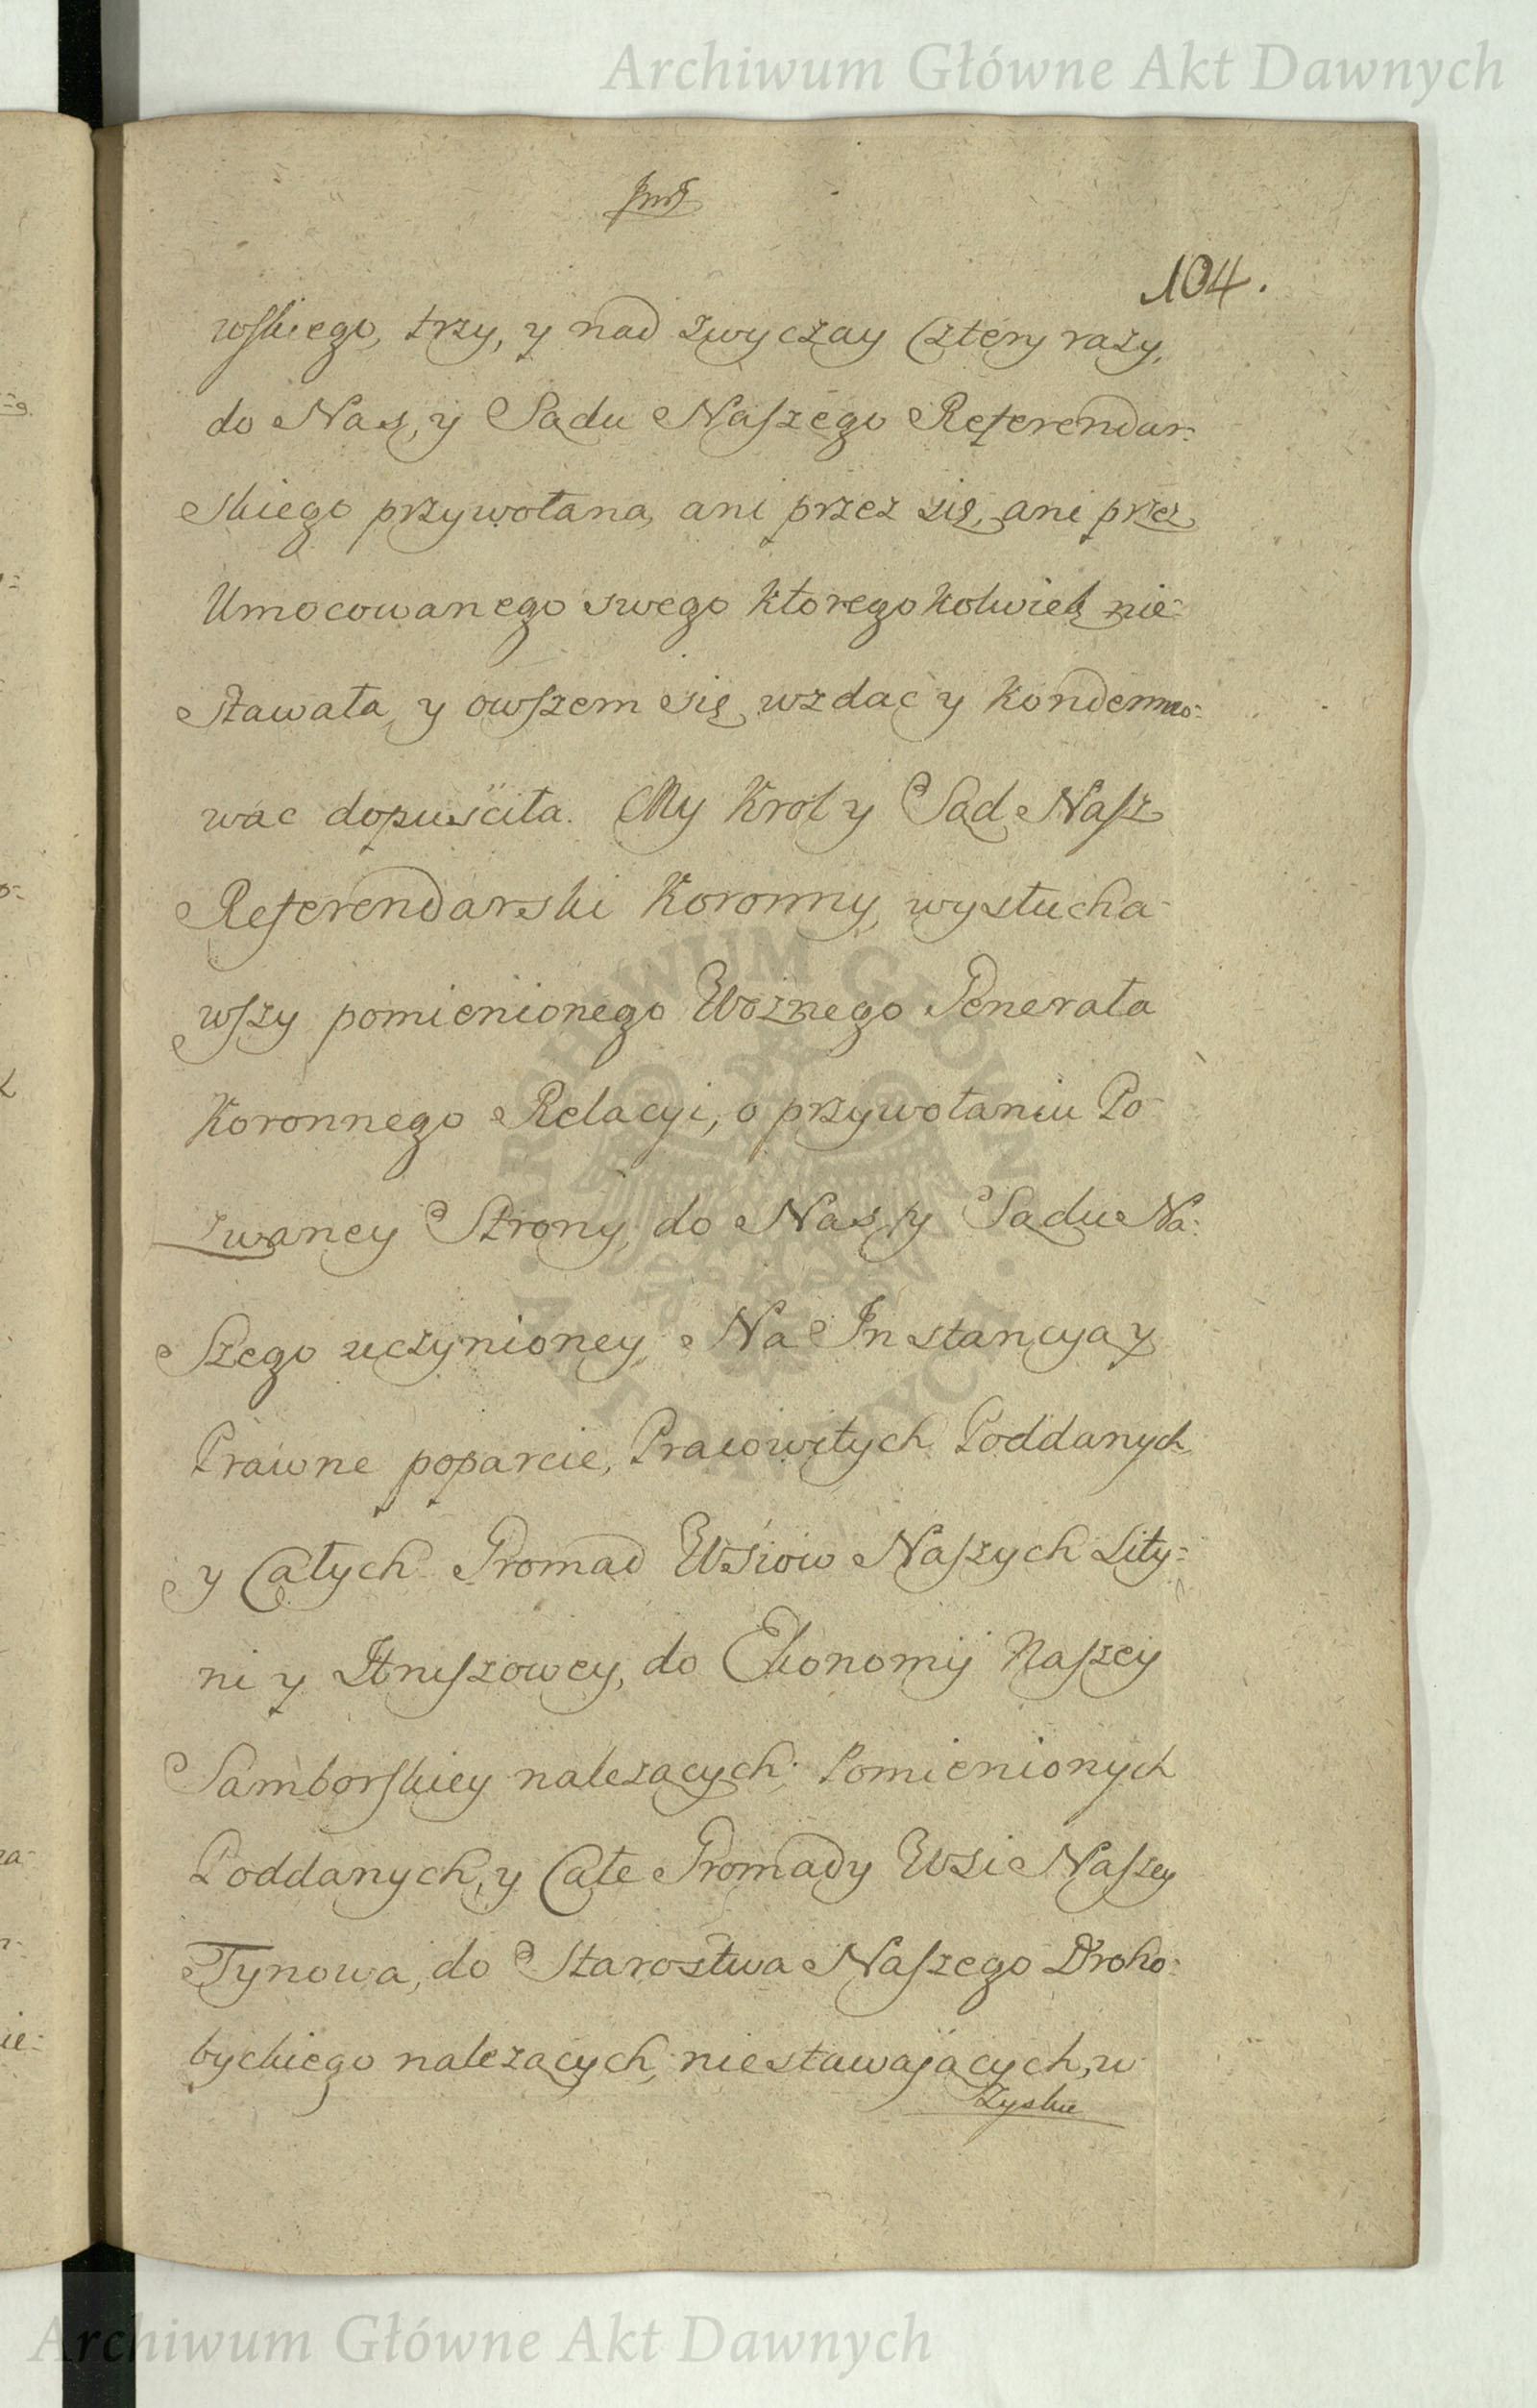 Archiwum Główne Akt Dawnych
104.
wskiego, trzy, y nad zwyczay Cztery razy,
do Nas, y Sądu Naszego Referendar:
skiego przywołana, ani przez się, ani przez
Umocowanego swego ktoregokolwiek nie:
stawała, y owszem się wzdać y kondemno:
wac dopuściła. My Krol y Sąd Nasz
Referendarski Koronny, wysłucha-
wszy pomienionego Woznego Generała
Koronnego Relacyi, o przywołaniu Po-
zwaney Strony, do Nas, y Sądu Na:
szego uczynioney, Na Instancyą y
Prawne poparcie, Pracowitych Poddanych
y Całych Gromad Wsiow Naszych Lity:
ni y Hruszowey, do Ekonomij Naszey
Samborskiey należących; Pomienionych
Poddanych, y Całe Gromady Wsi Naszey
Tynowa, do Starostwa Naszego Droho:
byckiego należących, niestawaiących, w
Zysku
Archiwum Główne Akt Dawnych